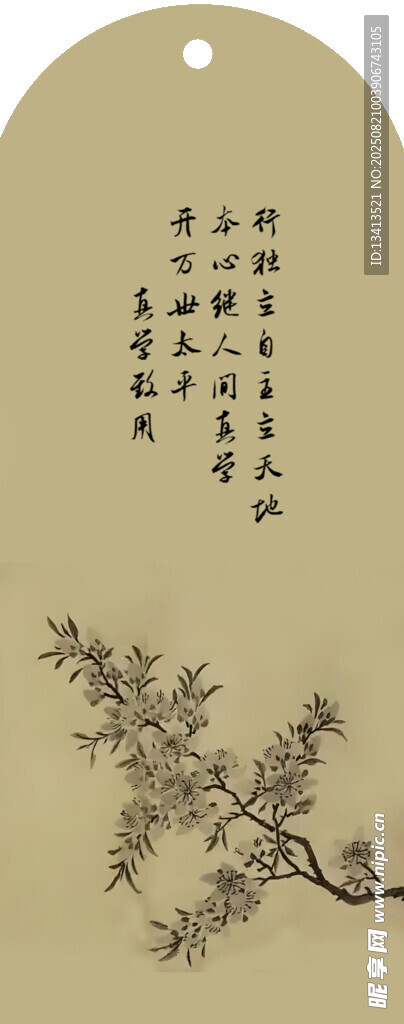 行独立自主立天地
本心继人间真学
开万世太平
真学致用
ID:13413521 NO:20250821003906743105
昵享网 www.nipic.cn